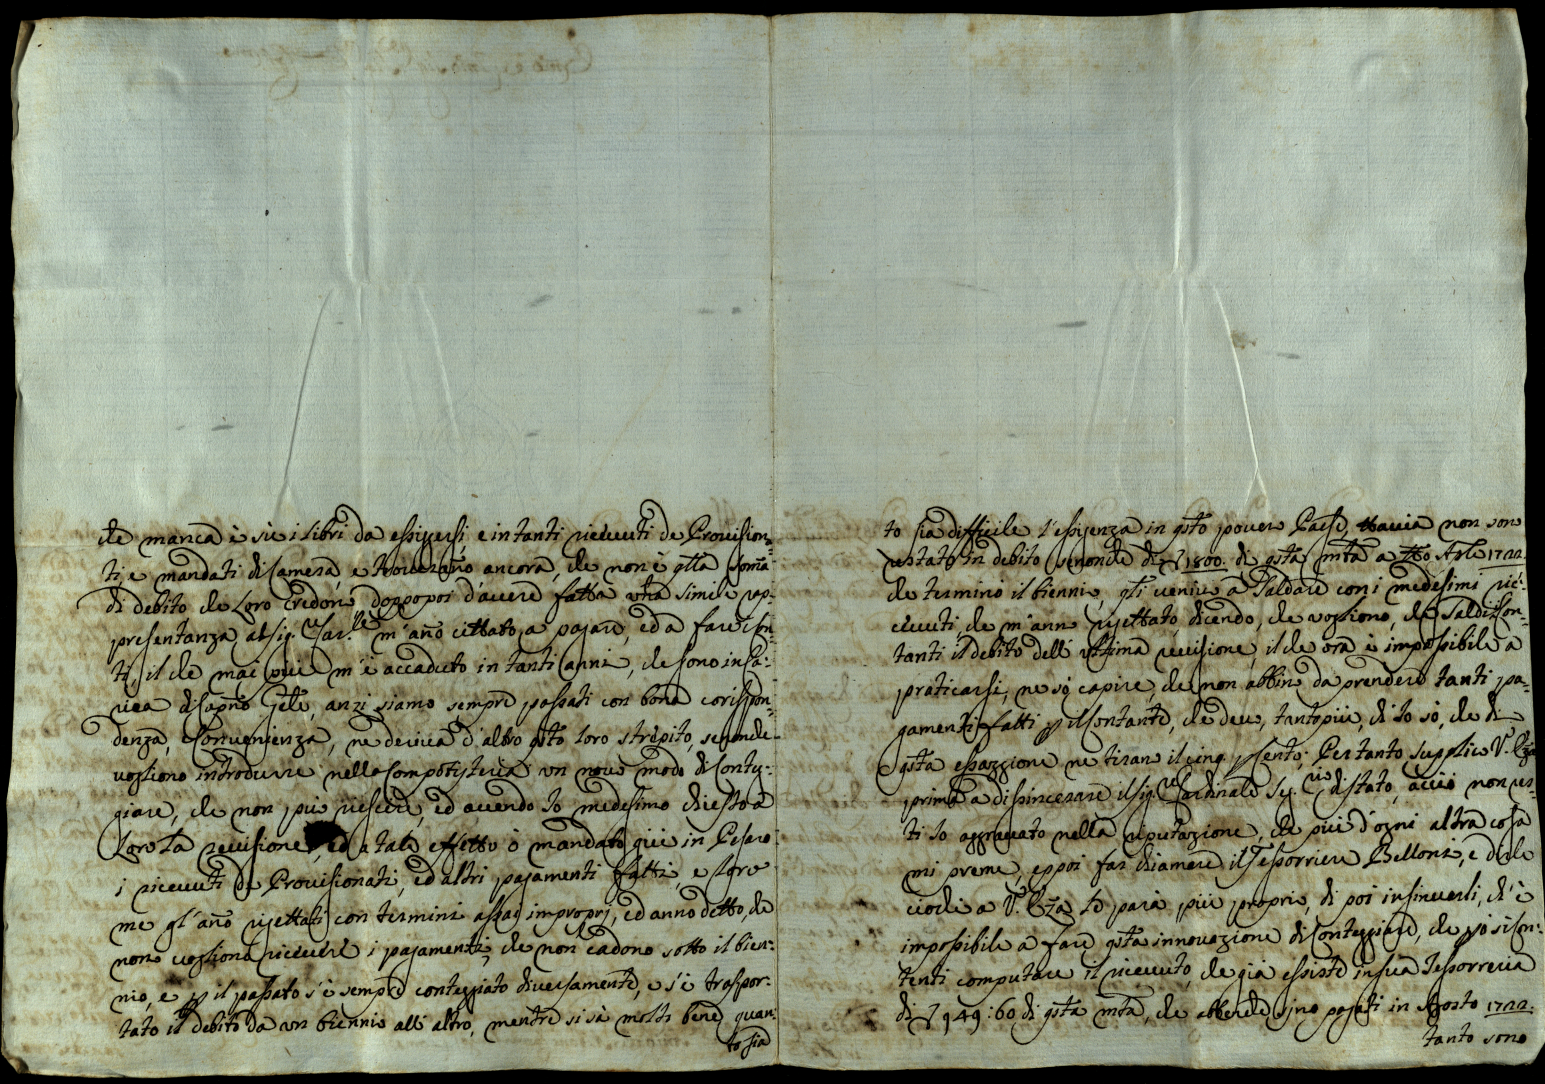 che manca è sù i libri da essiggersi e in tanti riceuuti de Prouision-
ti, e mandati di Camera, e troueranno ancora, che non è qlla Soma
di debito che Loro Credono, doppo poi d'auere fatta una simile rap-
presentanza al Sig.r Car.le m'ano cittato, a pagare, ed a fare i con-
ti, il che mai più m'è accaduto in tanti anni, che sono in Ca-
rica anzi siamo sempre passati con bona corrispon-
denza, e Conuenienza, ne deriua d'altro qsto loro strepito, se non che
uogliono introdurre nella Computisteria un nouo modo di Conteg-
giare, che non può riescere, ed auendo Io medesimo chiesto a
Loro La reuisione, ed a tale effetto ò mandato quì in Pesaro
i riceuuti de Prouisionati, ed altri pagamenti fatti, e Loro
me gl'ano rigettati con termini assai improprj, ed anno detto, che
non uogliono riceuere i pagamenti, che non cadono sotto il bien-
nio, e p il passato s'è sempre conteggiato diuersamente, e s'è traspor-
tato il debito da un biennio all'altro, mentre si sà molto bene quan-
to sia
to sia difficile l'essigenza in qsto pouero Paese, tuttauia non sono
restato in debito se non che di 1800. di qsta mta a tto Aple 1722.
che terminò il biennio, qti ueniuo a Saldare con i medesimi ri-
ceuuti, che m'anno rigettato, dicendo, che uogliono, che Saldi i Con-
tanti il debito dell'ultima reuisione, il che ora è impossibile a
praticarsi, ne sò capire, che non abbino da prendere tanti pa-
gamenti fatti p il Contante, che deuo, tanto più, ch'Io sò, che di
qsta essazzione ne tirano il cinq. p Cento; Pertanto supplico V. Eza
prima a dissincerare il Sig.r Cardinale Seg.rio di Stato, acciò non res-
ti Io aggrauato nella riputazione, che più d'ogni altra cosa
mi preme, e poi far chiamare il Tessorriere Belloni, e dirle
ciochè a V. Eza le parà più proprio, di poi insinuarli, ch'è
impossibile a fare qsta innouazione di Conteggiare, che pò si con-
tenti computare il riceuuto, che già essiste in Sua Tessorreria
di 949:60 di qsta mta, che abbenche sino pagati in Agosto 1722.
tanto sono